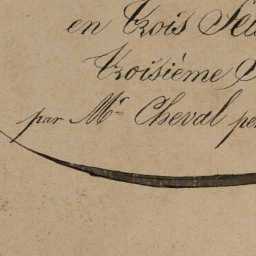 en trois
troisième
par Mr Cheval